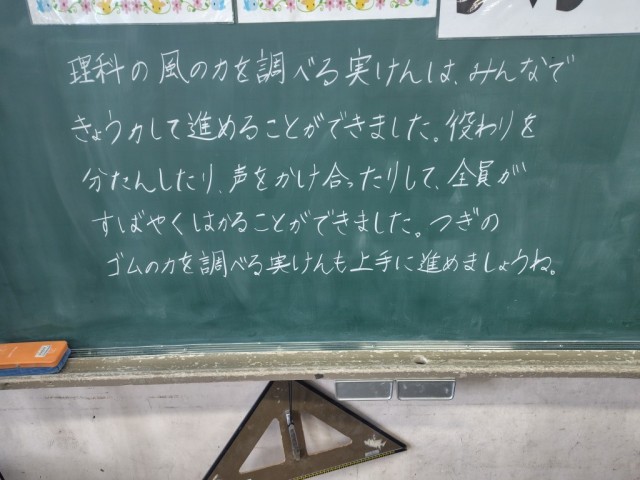 理科の風の力を調べる実けんは、みんなで
きょう力して進めることができました。役わりを
分たんしたり、声をかけ合ったりして、全員が
すばやくはかることができました。つぎの
ゴムの力を調べる実けんも上手に進めましょうね。